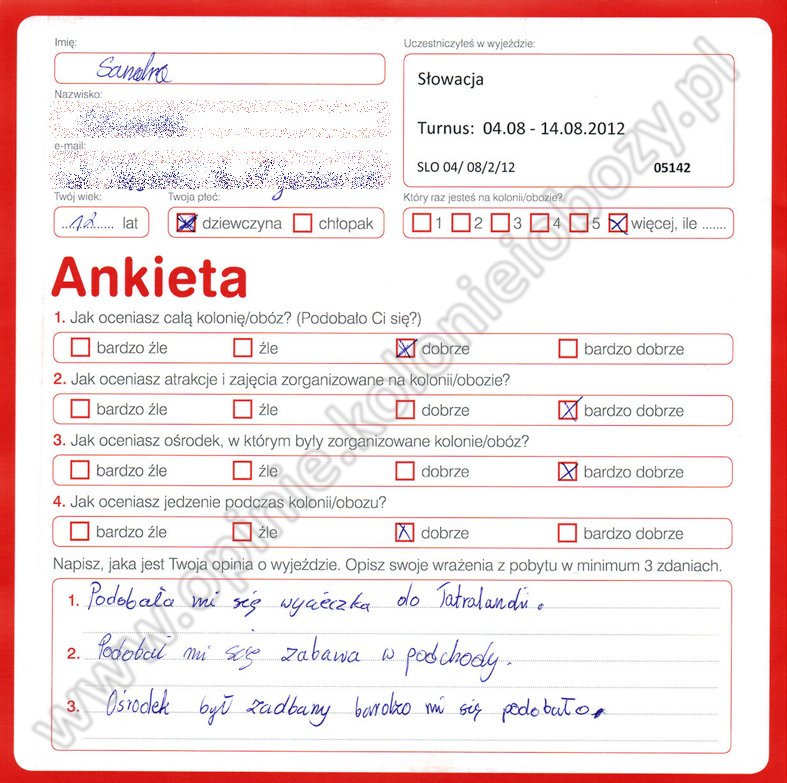 Imię:
Sandra
Uczestniczyłeś w wyjeździe:
Słowacja
Turnus: 04.08 - 14.08.2012
SLO 04/ 08/2/12 05142
Nazwisko:
e-mail:
Twój wiek:
12 lat
Twoja płeć:
dziewczyna chłopak
Który raz jesteś na kolonii/obozie?
1 2 3 4 5 więcej, ile .......
Ankieta
1. Jak oceniasz całą kolonię/obóz? (Podobało Ci się?)
bardzo źle źle dobrze bardzo dobrze
2. Jak oceniasz atrakcje i zajęcia zorganizowane na kolonii/obozie?
bardzo źle źle dobrze bardzo dobrze
3. Jak oceniasz ośrodek, w którym były zorganizowane kolonie/obóz?
bardzo źle źle dobrze bardzo dobrze
4. Jak oceniasz jedzenie podczas kolonii/obozu?
bardzo źle źle dobrze bardzo dobrze
Napisz, jaka jest Twoja opinia o wyjeździe. Opisz swoje wrażenia z pobytu w minimum 3 zdaniach.
1. Podobała mi się wycieczka do Tatralandii.
2. Podobał mi się zabawa w podchody.
3. Ośrodek był zadbany bardzo mi się podobało.
www.opinie.kolonieiobozy.pl